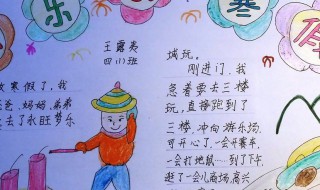 乐
寒
假
王露夷
四(1)班
放寒假了，我
爸爸、妈妈、弟弟
去了永旺梦乐
城玩。
刚进门，我
急着要去三楼
玩，直接跑到了
三楼，冲向游乐场
可开心了，一会开赛车，
一会打地鼠……到了下午，
逛了一会儿商场，高兴